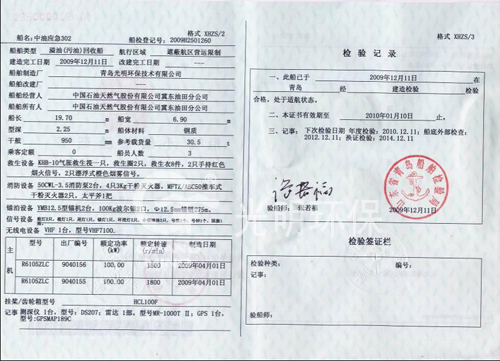 格式 XHZS/2
船名：中油应急302
船检登记号：2009H2501260
船舶类型 溢油(污油)回收船 航行区域 遮蔽航区营运限制
建造完工日期 2009年12月11日 改建完工日期
船舶制造厂 青岛光明环保技术有限公司
船舶改建厂
船舶经营人 中国石油天然气股份有限公司冀东油田分公司
船舶所有人 中国石油天然气股份有限公司冀东油田分公司
船长 19.70 m 船宽 6.90 m
型深 2.25 m 船体材料 钢质
干舷 950 mm 参考载货量 30.5 t
乘客定额 0 船员人数 3
救生设备 KHB-10气胀救生筏一只，救生圈2只，救生衣8件，2只手持红色
烟火信号，2只漂浮式橙色烟雾信号。
消防设备 50CWL-3.5消防泵2台，4只3Kg干粉灭火器，MFTZ/ABC50推车式
干粉灭火器2只，太平斧1把
无线电设备 VHF 1台，型号VHF7100.
主机
型号 出厂编号 额定功率(kW) 额定转速(r/min) 制造日期
R6105ZLC 9040156 100.00 1800 2009年04月01日
R6105ZLC 9040155 100.00 1800 2009年04月01日
挂桨/齿轮箱型号 HCL100F
记事 测深仪 1台，型号：DS207；雷达 1部，型号MR-1000T II；GPS 1台，
型号：GPSMAP189C
格式 XHZS/3
检 验 记 录
一、此船已于 2009年12月11日 在
青岛 经 建造检验 检验
合格，处于适航状态。
二、本证书有效期至 2010年01月10日 止。
三、记事：下次检验日期 年度检验：2010.12.11；船底外部检查：
2012.12.11；换证检验：2014.12.11
验船师： 张若福
2009年12月11日
检验签证栏
检验种类： 编号：
记事：
验船师：